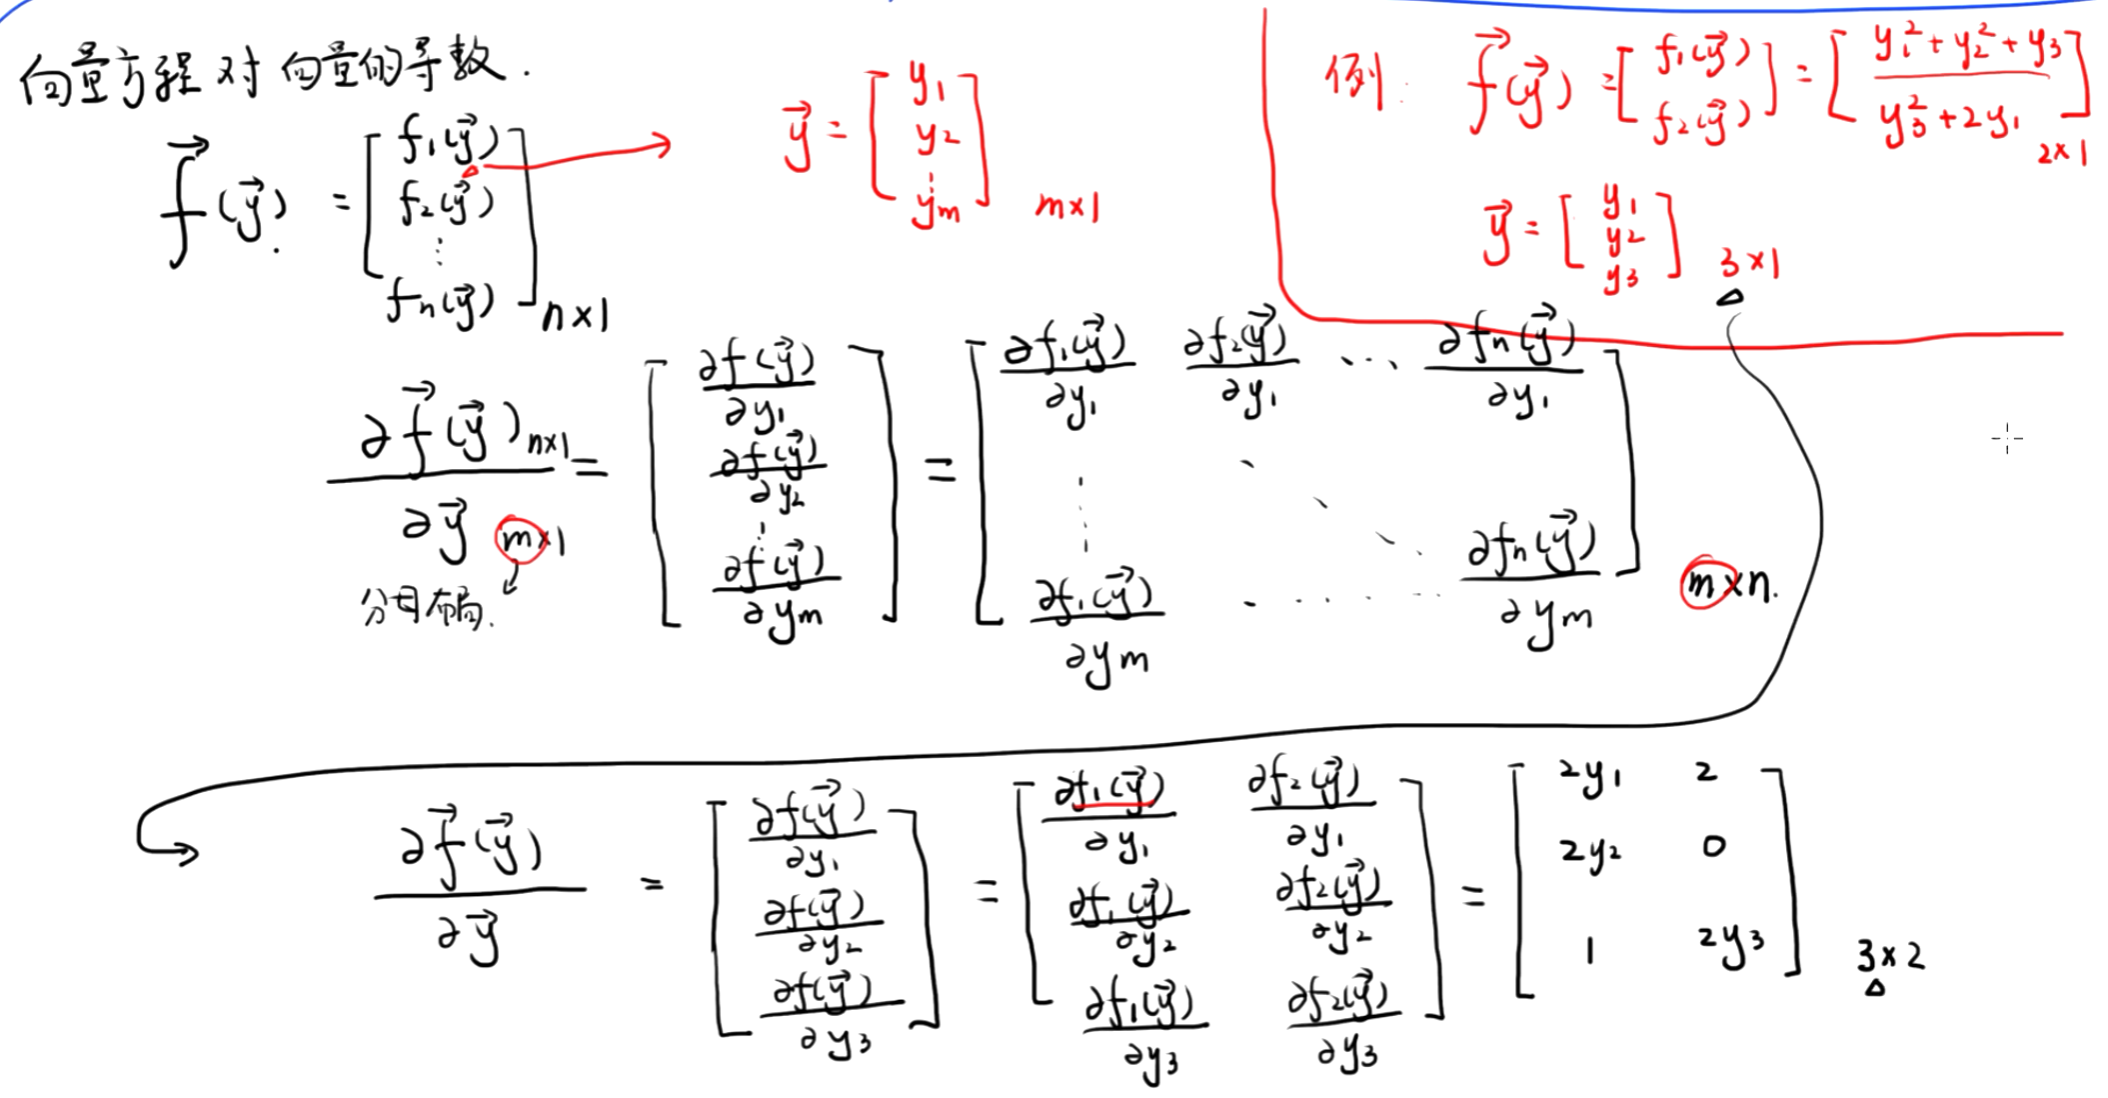 向量方程对向量的导数.
f⃗(y⃗) = [ f₁(y⃗) f₂(y⃗) ⋮ fₙ(y⃗) ] n×1
y⃗ = [ y₁ y₂ ⋮ yₘ ] m×1
例: f⃗(y⃗) = [ f₁(y⃗) f₂(y⃗) ] = [ y₁²+y₂²+y₃ y₃²+2y₁ ] 2×1
y⃗ = [ y₁ y₂ y₃ ] 3×1
∂f⃗(y⃗)n×1 / ∂y⃗ m×1 = [ ∂f(y⃗)/∂y₁ ∂f(y⃗)/∂y₂ ⋮ ∂f(y⃗)/∂yₘ ] = [ ∂f₁(y⃗)/∂y₁ ∂f₂(y⃗)/∂y₁ ⋯ ∂fₙ(y⃗)/∂y₁ ⋮ ⋱ ∂f₁(y⃗)/∂yₘ ⋯ ∂fₙ(y⃗)/∂yₘ ] m×n.
分母布局.
∂f⃗(y⃗)/∂y⃗ = [ ∂f(y⃗)/∂y₁ ∂f(y⃗)/∂y₂ ∂f(y⃗)/∂y₃ ] = [ ∂f₁(y⃗)/∂y₁ ∂f₂(y⃗)/∂y₁ ∂f₁(y⃗)/∂y₂ ∂f₂(y⃗)/∂y₂ ∂f₁(y⃗)/∂y₃ ∂f₂(y⃗)/∂y₃ ] = [ 2y₁ 2 2y₂ 0 1 2y₃ ] 3×2